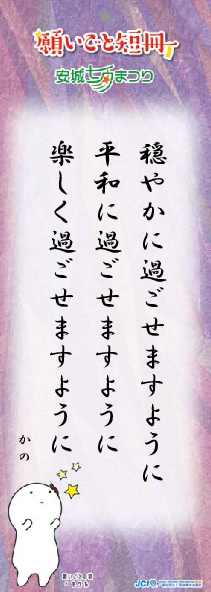 願いごと短冊
安城七夕まつり
穏やかに過ごせますように
平和に過ごせますように
楽しく過ごせますように
かの
JCI